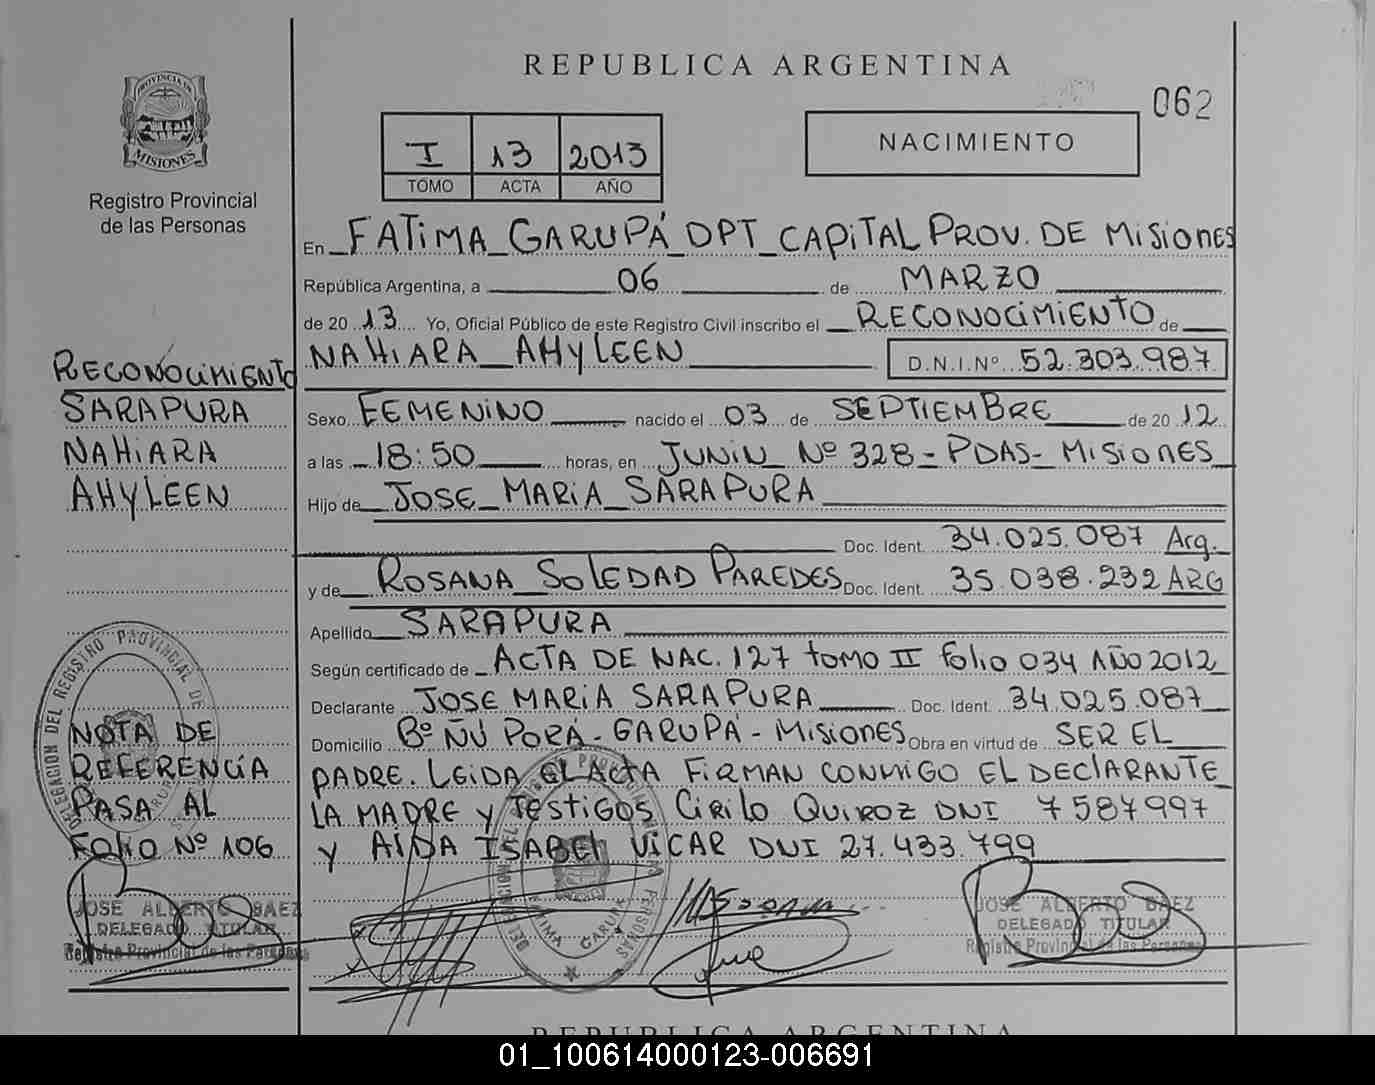 REPUBLICA ARGENTINA
062
PROVINCIA DE
MISIONES
Registro Provincial
de las Personas
I 13 2013
TOMO ACTA AÑO
NACIMIENTO
En FATIMA GARUPÁ DPT CAPITAL PROV. DE MISIONES
República Argentina, a 06 de MARZO
de 2013 Yo, Oficial Público de este Registro Civil inscribo el RECONOCIMIENTO de
NAHIARA AHYLEEN D.N.I.Nº 52.303.987
Sexo FEMENINO nacido el 03 de SEPTIEMBRE de 2012
a las 18:50 horas, en JUNIN Nº 328 - PDAS - MISIONES
Hijo de JOSE MARIA SARAPURA
Doc. Ident. 34.025.087 Arg.
y de ROSANA SOLEDAD PAREDES Doc. Ident. 35.038.232 ARG
Apellido SARAPURA
Según certificado de ACTA DE NAC. 127 tomo II folio 034 AÑO 2012
Declarante JOSE MARIA SARAPURA Doc. Ident. 34.025.087
Domicilio Bº ÑU PORÁ - GARUPÁ - MISIONES Obra en virtud de SER EL
PADRE. LEIDA EL ACTA FIRMAN CONMIGO EL DECLARANTE
LA MADRE y TESTIGOS CIRILO QUIROZ DNI 7587997
y AIDA ISABEL VICAR DNI 27.433.799
RECONOCIMIENTO
SARAPURA
NAHIARA
AHYLEEN
DELEGACION DEL REGISTRO PROVINCIAL DE
NOTA DE
REFERENCIA
PASA AL
Folio Nº 106
JOSE ALBERTO BAEZ
DELEGADO TITULAR
Registro Provincial de las Personas
DELEGACION DEL REGISTRO PROVINCIAL DE LAS PERSONAS
FATIMA GARUPA
JOSE ALBERTO BAEZ
DELEGADO TITULAR
Registro Provincial de las Personas
REPUBLICA ARGENTINA
01_100614000123-006691